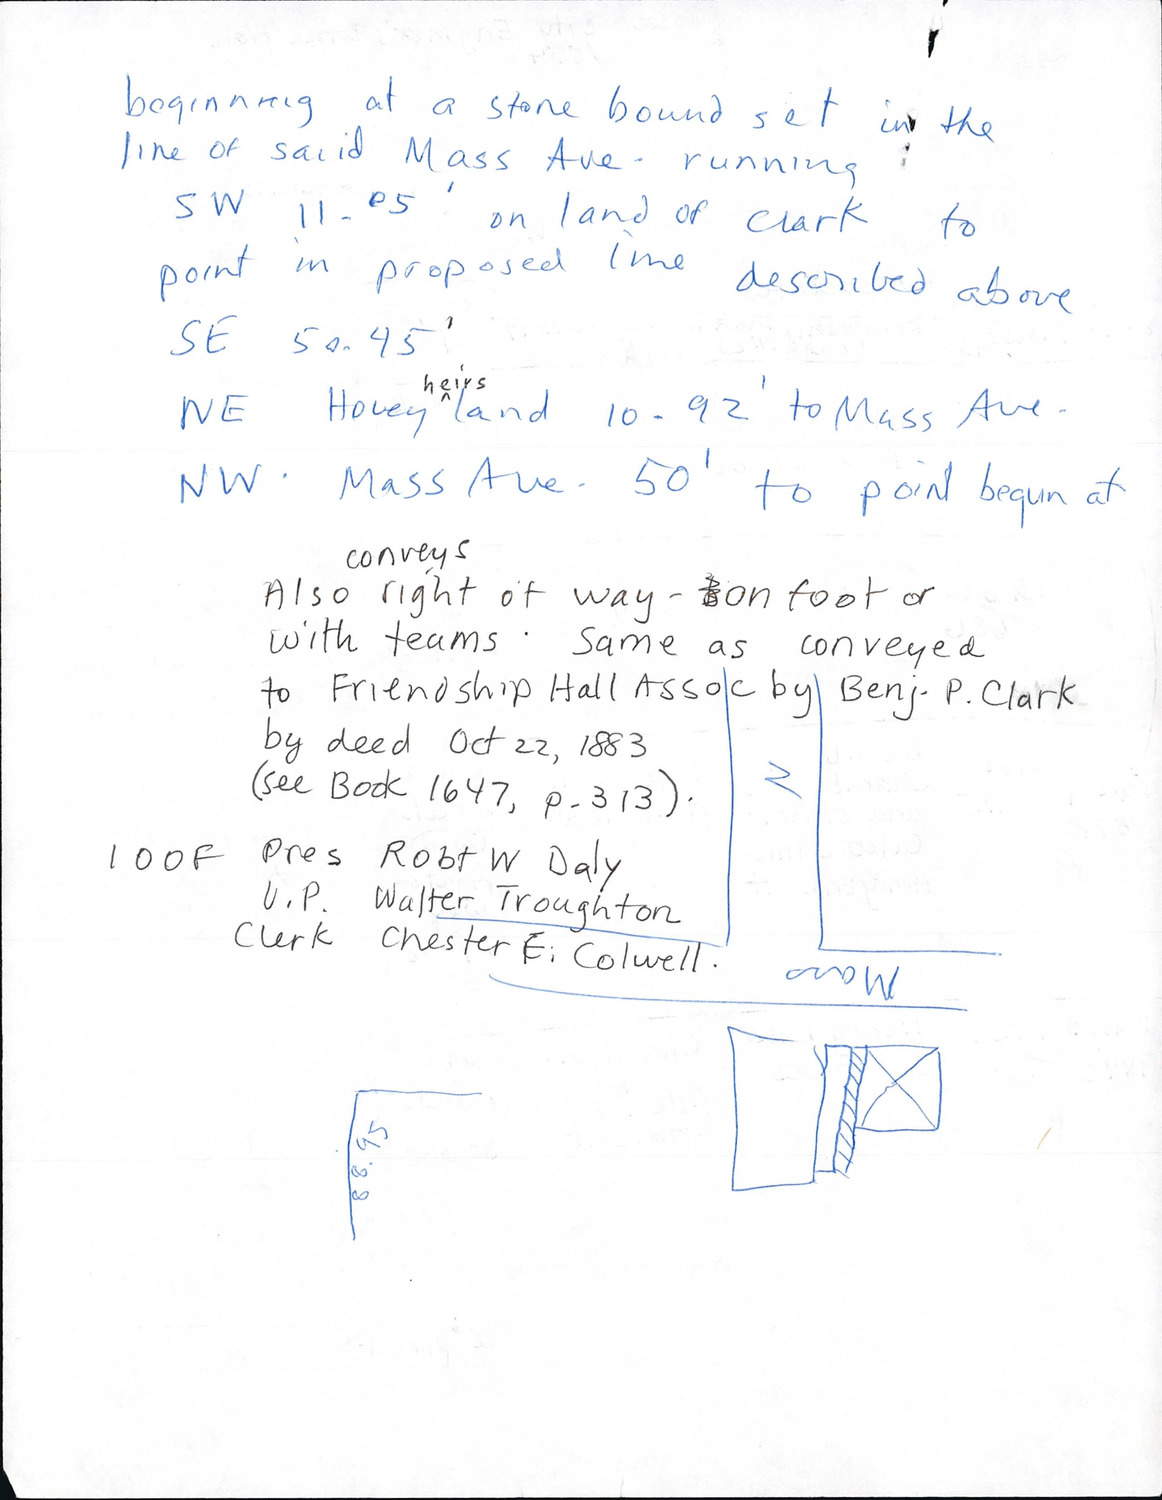 beginning at a stone bound set in the
line of said Mass Ave. running
SW 11.05' on land of Clark to
point in proposed line described above
SE 50.45'
heirs
NE Hovey ^ land 10.92' to Mass Ave.
NW. Mass Ave. 50' to point begun at
conveys
Also right of way - on foot or
with teams. Same as conveyed
to Friendship Hall Assoc by Benj. P. Clark
by deed Oct 22, 1883
(see Book 1647, p. 313).
IOOF Pres Robt W Daly
V.P. Walter Troughton
Clerk Chester E. Colwell.
Mass